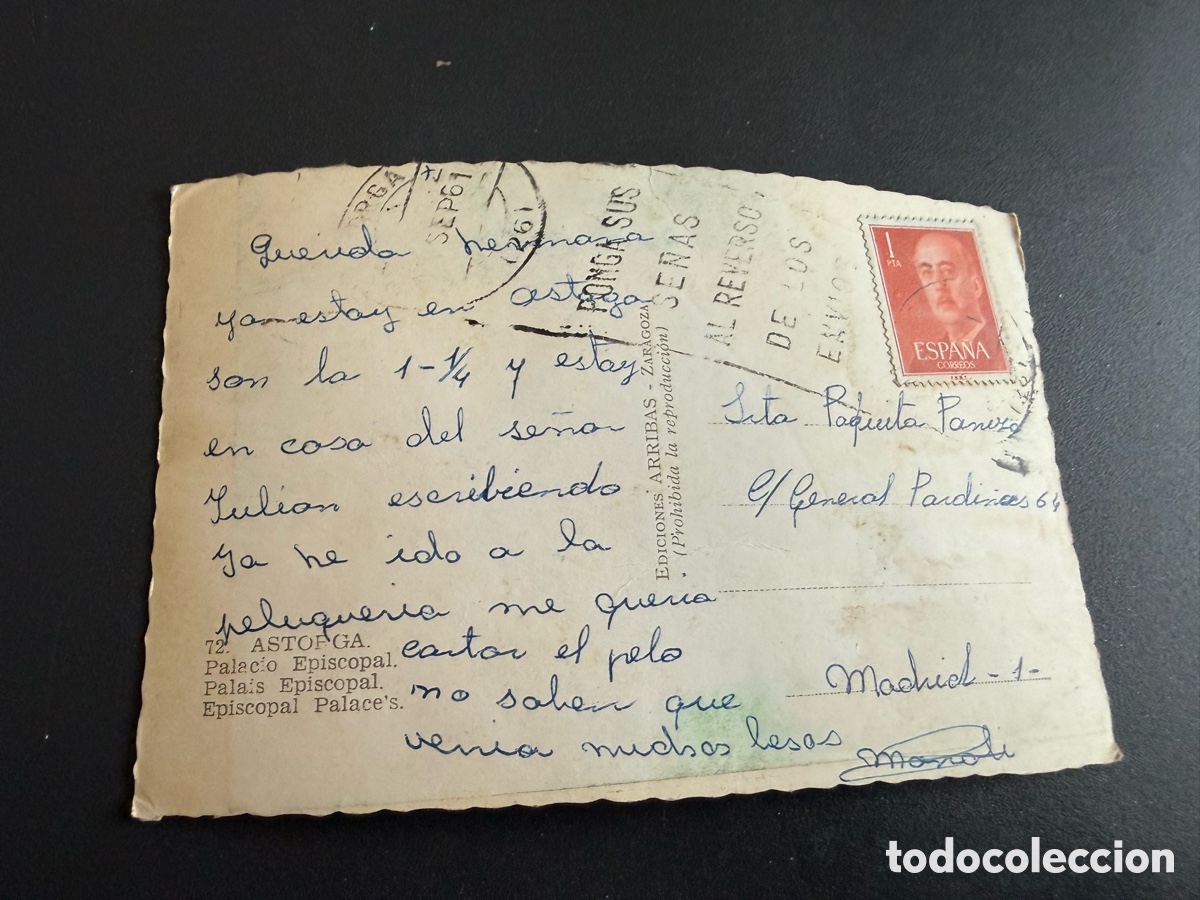 SEP61
1961
PONGA SUS
SEÑAS
AL REVERSO
DE LOS
ENVIOS
1
PTA
ESPAÑA
CORREOS
Querida hermana
ya estoy en astorga
son la 1-1/4 y estoy
en casa del señor
Julian escribiendo
Ya he ido a la
peluqueria me queria
cortar el pelo
no saben que
venia muchos besos
Manoli
EDICIONES ARRIBAS - ZARAGOZA
(Prohibida la reproducción)
Srta Paquita
C/ General Pardiñas 64
Madrid - 1 -
72. ASTORGA.
Palacio Episcopal.
Palais Episcopal.
Episcopal Palace's.
todocoleccion